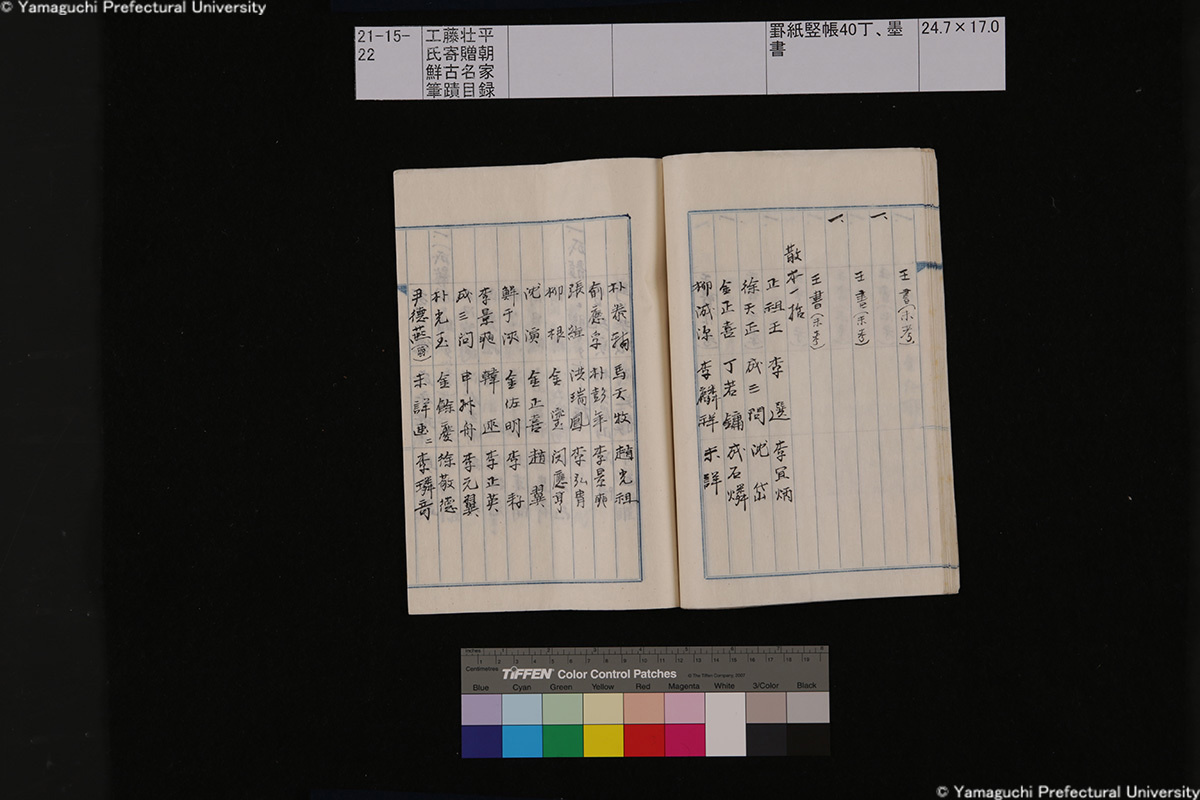 © Yamaguchi Prefectural University
21-15-22
工藤壮平
氏寄贈朝
鮮古名家
筆蹟目録
罫紙竪帳40丁、墨書
24.7×17.0
一、
王書(未考)
一、
王書(未考)
王書(未考)
散本一拾
正祖王 李選 李宜炳
徐天正 成三問 沈岱
金正喜 丁若鏞 成石燐
柳成源 李麟祥 未詳
朴泰輔 馬天牧 趙光祖
俞應孚 朴彭年 李景
張維 洪瑞鳳 李弘胄
柳根 金瑬 閔應亨
沈演 金正喜 趙翼
鮮于浹 金佐明 李
李景奭 韓 李正英
成三問 申叔舟 李元翼
朴光玉 金餘慶 徐敬德
尹德熙 未詳画二 李
inches
Centimetres
TIFFEN Color Control Patches
© The Tiffen Company, 2007
Blue Cyan Green Yellow Red Magenta White 3/Color Black
© Yamaguchi Prefectural University